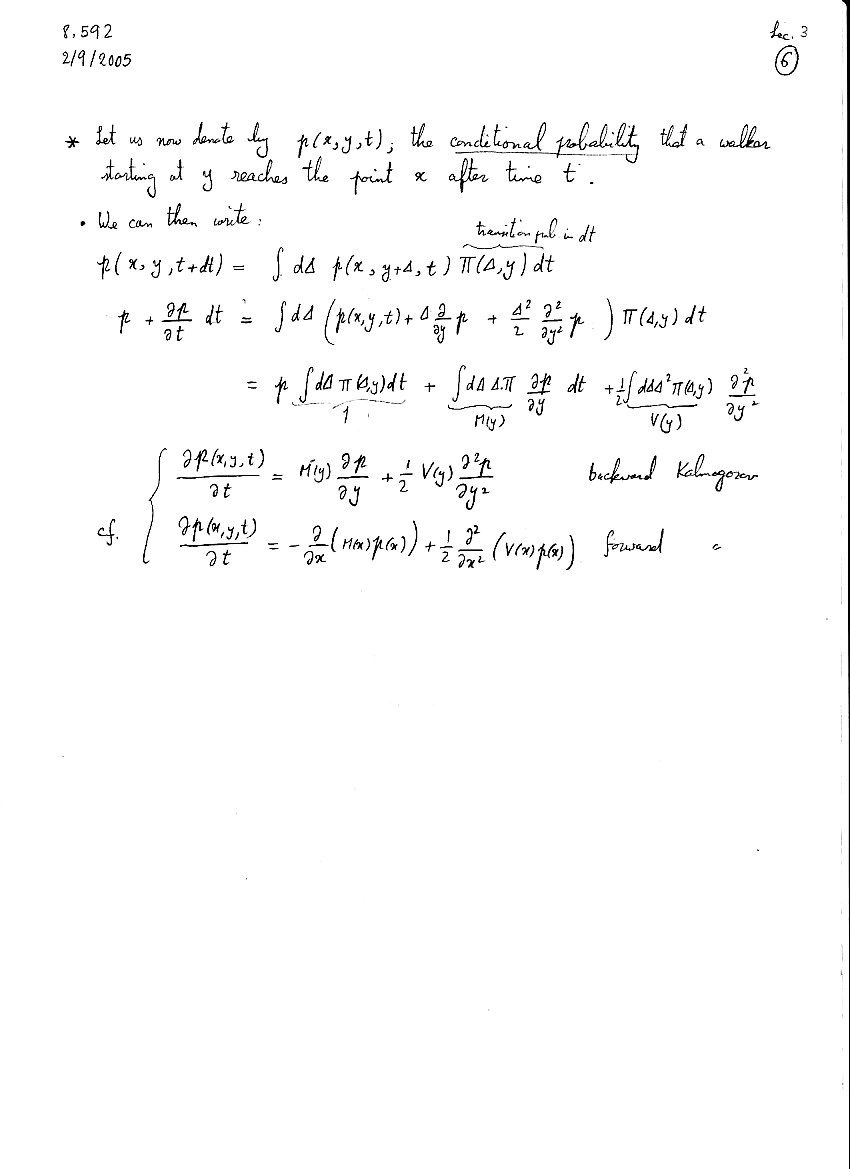 8.592
Lec. 3
2/9/2005
⑥
* Let us now denote by p(x,y,t), the conditional probability that a walker
starting at y reaches the point x after time t.
• We can then write:
transition prob in dt
p(x,y,t+dt) = ∫ dΔ p(x,y+Δ,t) π(Δ,y) dt
p + ∂p/∂t dt = ∫ dΔ (p(x,y,t) + Δ ∂/∂y p + Δ²/2 ∂²/∂y² p) π(Δ,y) dt
= p ∫dΔ π(Δ,y)dt + ∫dΔ Δ.π ∂p/∂y dt + 1/2 ∫dΔΔ²π(Δ,y) ∂²p/∂y²
1 M(y) V(y)
∂p(x,y,t)/∂t = M(y) ∂p/∂y + 1/2 V(y) ∂²p/∂y² backward Kolmogorov
cf. ∂p(x,y,t)/∂t = - ∂/∂x (M(x)p(x)) + 1/2 ∂²/∂x² (V(x)p(x)) forward "